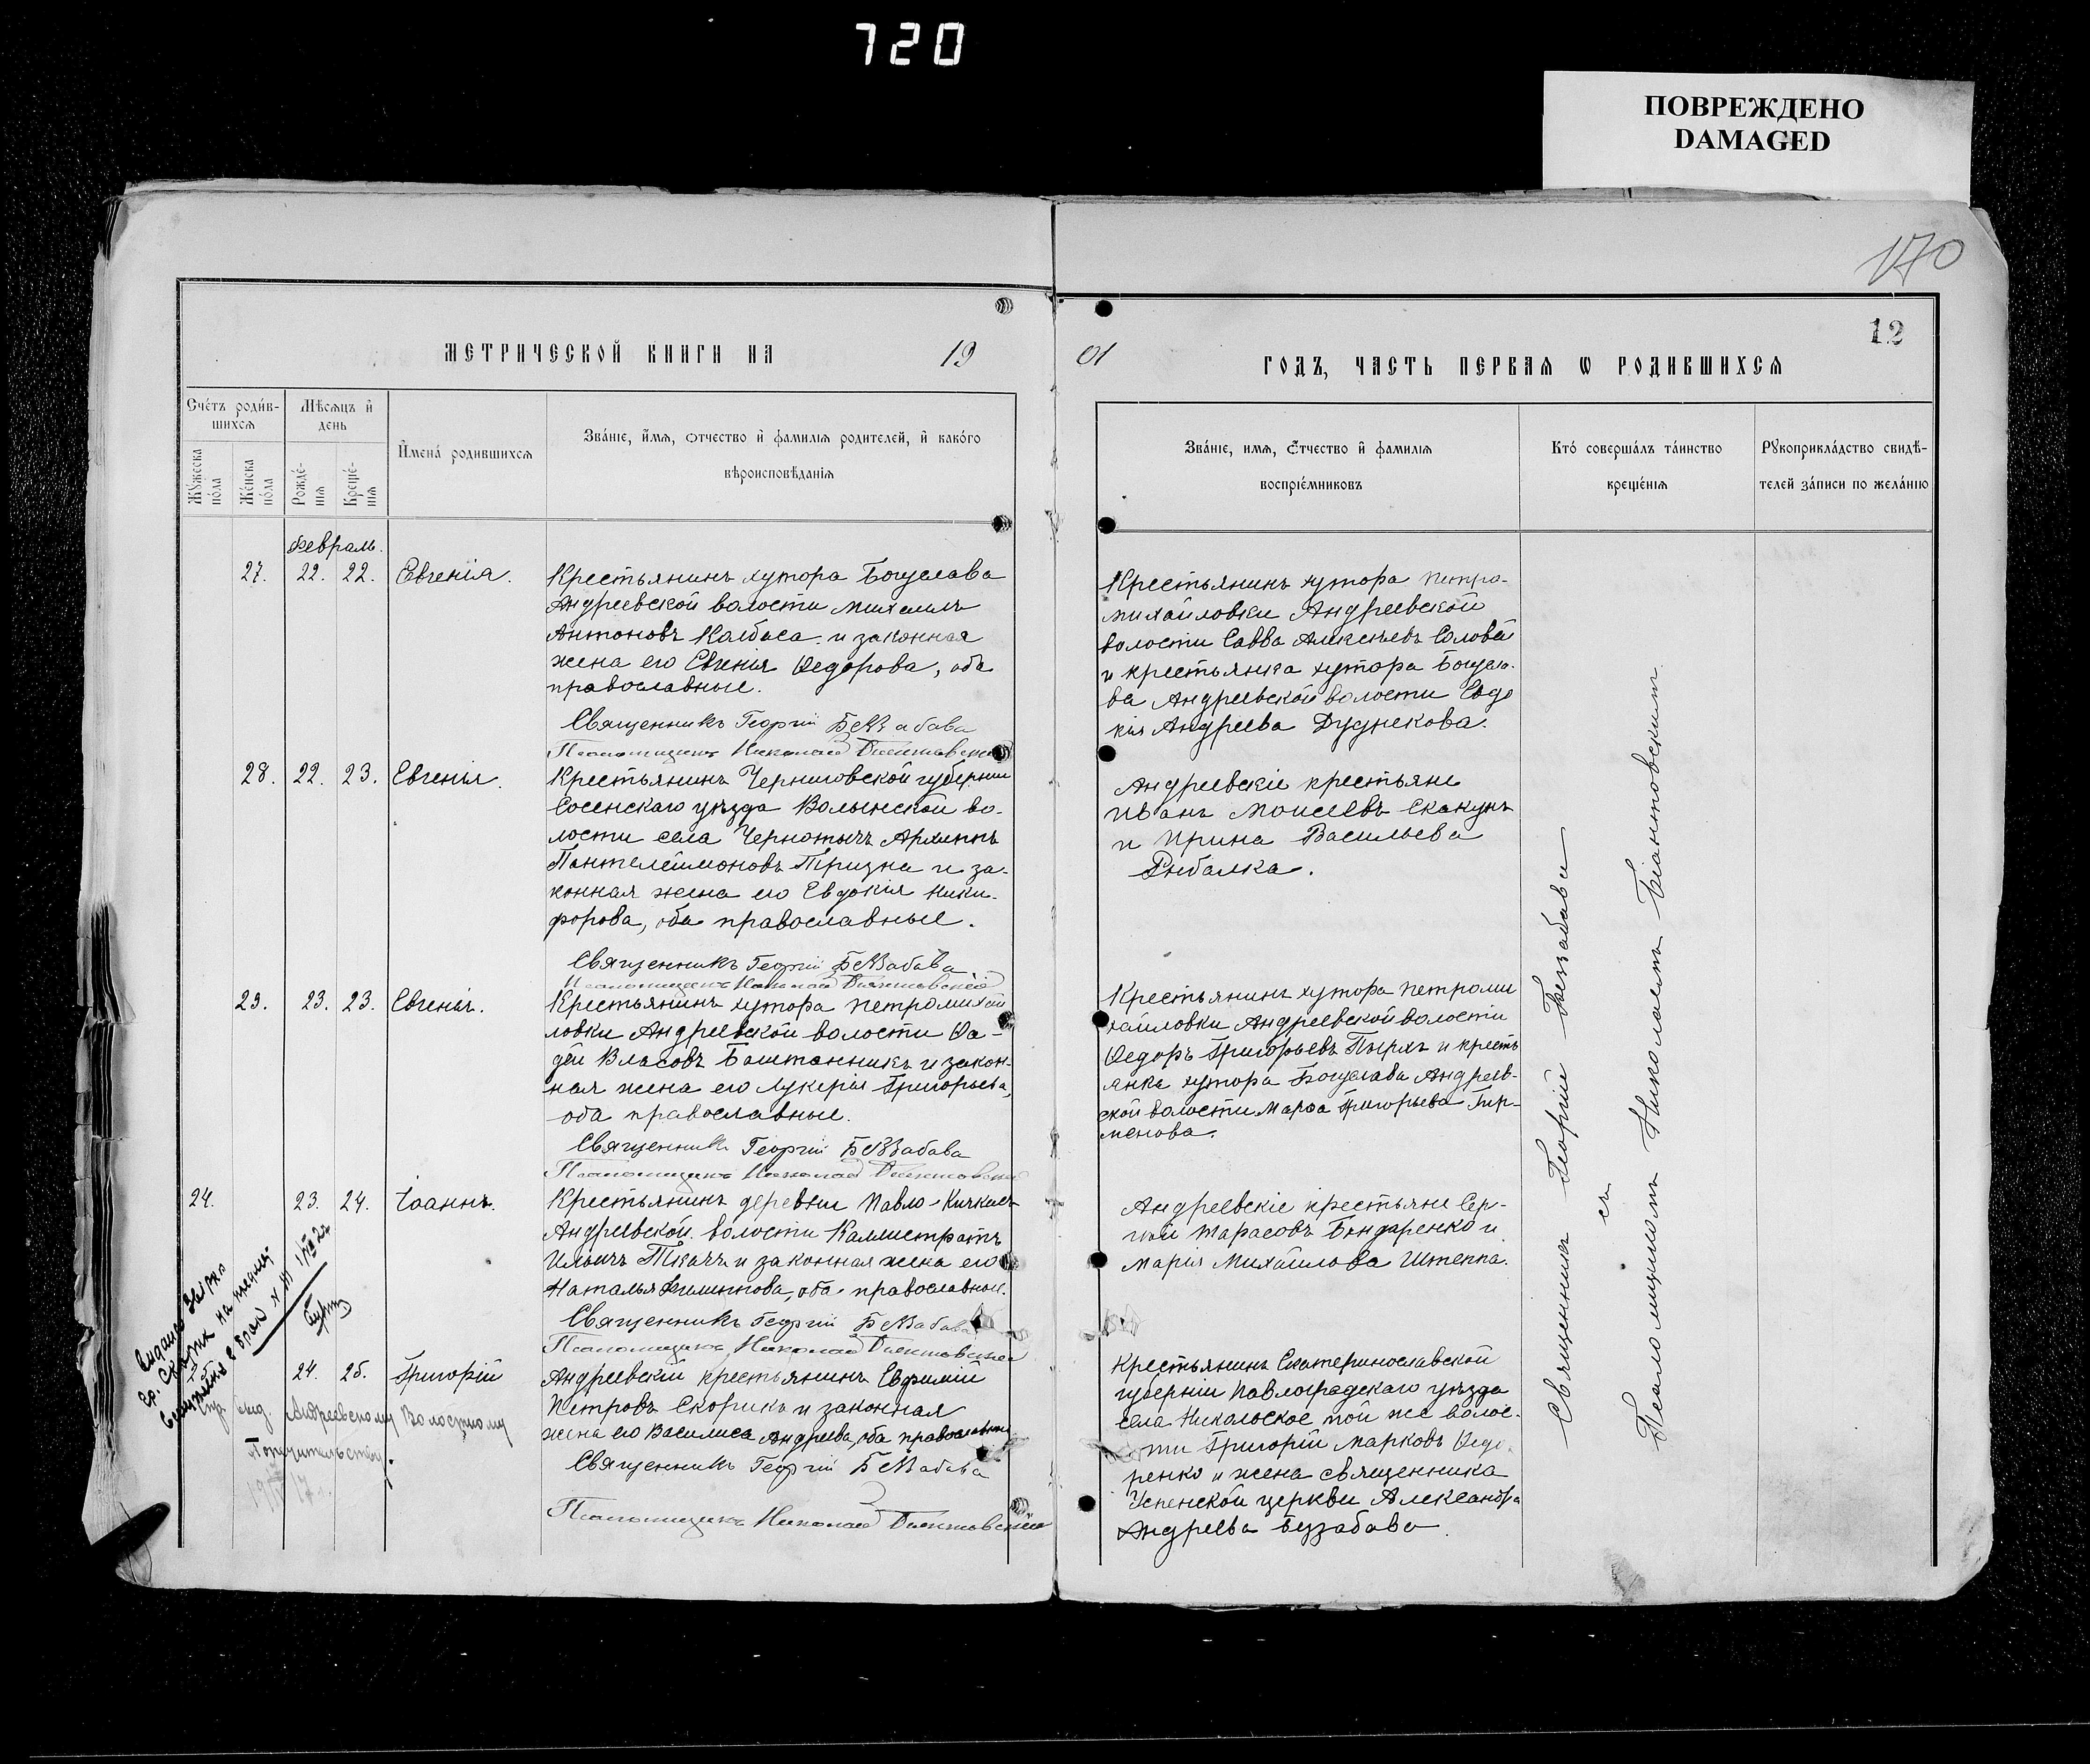 720
ПОВРЕЖДЕНО
DAMAGED
170
12
МЕТРИЧЕСКОЙ КНИГИ НА 19
01 ГОДЪ, ЧАСТЬ ПЕРВАЯ Ѡ РОДИВШИХСЯ
Сче́тъ роди́в-
шихсѧ
Мѣсѧцъ и҆
день
Мꙋжеска
по́ла
Же́нска
по́ла
Рожде́-
нїѧ
Креще́-
нїѧ
И҆мена́ родившихсѧ
Зва́нїе, и҆́мѧ, ѻтчество и҆ фамилїѧ родителей, и҆ како́го
вѣроисповѣданїѧ
Зва́нїе, имѧ, ѻтчество и҆ фамилїѧ
воспрїе́мниковъ
Кто́ соверша́лъ та́инство
креще́нїѧ
Рꙋкоприкла́дство свидѣ-
телей за́писи по жела́нїю
Февраль.
27. 22. 22. Евгенія.
Крестьянинъ хутора Богуслава
Андреевской волости Михаилъ
Антоновъ Колбаса и законная
жена его Евгенія Ѳедорова, оба
православные.
Священникъ Георгій Безабава
Псаломщикъ Николай
Крестьянинъ хутора Петро-
михайловки Андреевской
волости Савва Алексѣевъ Соловей
и крестьянка хутора Богусла-
ва Андреевской волости Евдо
кія Андреева Дуднекова.
28. 22. 23. Евгенія.
Крестьянинъ Черниговской губерніи
Сосенскаго уѣзда Волынской во-
лости села Чернотычъ Архиппъ
Пантелеймоновъ Тризна и за-
конная жена его Евдокія Ники-
форова, оба православные.
Священникъ Георгій Безабава
Псаломщикъ Николай
Андреевскіе крестьяне
Иванъ Моисеевъ Скакунъ
и Ирина Васильева
Рыбалка.
29. 23. 23. Евгенія.
Крестьянинъ хутора Петромихай
ловки Андреевской волости Ѳа-
дей Власовъ Баштанникъ и закон-
ная жена его Лукерія Григорьева,
оба православные.
Священникъ Георгій Безабава
Псаломщикъ Николай
Крестьянинъ хутора Петроми
хайловки Андреевской волости
Ѳедоръ Григорьевъ Пырхъ и кресть
янка хутора Богуслава Андреев-
ской волости Марѳа Григорьева Гир-
менова.
24. 23. 24. Іоаннъ.
Крестьянинъ деревни Павло-Кичкасъ
Андреевской волости Каллистратъ
Ильичъ Ткачъ и законная жена его
Наталья Филиппова, оба православные.
Священникъ Георгій Безабава
Псаломщикъ Николай
Андреевскіе крестьяне Сер-
гѣй Тарасовъ Бондаренко и
Марія Михайлова Штеппа.
24. 25. Григорій
Андреевскій крестьянинъ Евфимій
Петровъ Скорикъ и законная
жена его Василиса Андреева, оба православные
Священникъ Георгій Безабава
Псаломщикъ Николай
Крестьянинъ Екатеринославской
губерніи Павлоградскаго уѣзда
села Никольское той же волос-
ти Григорій Марковъ Ѳедо
ренко и жена священника
Успенской церкви Александра
Андреева Безабава.
Андреевскому Волостному
Попечительству
Священникъ Георгій Безабава
съ
Псаломщикомъ Николаемъ Біантовскимъ